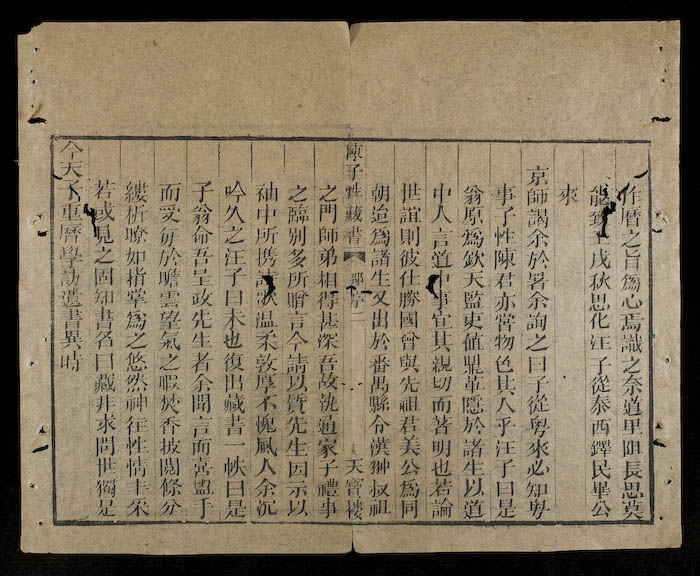 作曆之旨爲心焉識之奈道里阻長思莫
能致壬戌秋思化汪子從泰西鐸民畢公
來
京師謁余於署余詢之曰子從粤來必知粤
事子性陳君亦嘗物色其人乎汪子曰是
翁原爲欽天監吏値鼎革隱於諸生以道
中人言道中事宜其親切而著明也若論
世誼則彼仕勝國曾與先祖君美公爲同
朝迨爲諸生又出於番禺縣令漢翀叔祖
陳子性藏書 序二 天寶樓
之門師弟相得甚深吾故執通家子禮事
之臨別多所贈言今請以質先生因示以
袖中所携詩歌温柔敦厚不愧風人余沉
吟久之汪子曰未也復出藏書一帙曰是
子翁命吾呈政先生者余聞言而喜盥手
而受每於瞻雲望氣之暇焚香披閱條分
縷析瞭如指掌爲之悠然神往性情丰采
若或見之固知書名曰藏非求問世獨是
今天子重曆學訪遺書異時